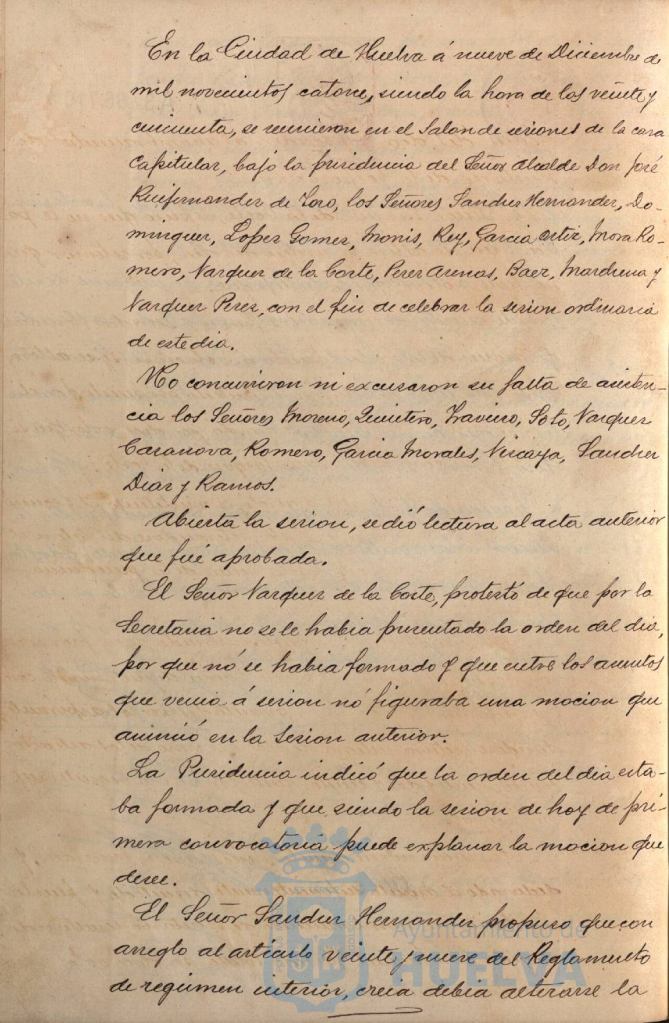 En la Ciudad de Huelva á nueve de Diciembre de
mil novecientos catorce, siendo la hora de las veinte y
cincuenta, se reunieron en el Salon de sesiones de la casa
capitular, bajo la presidencia del Señor Alcalde Don José
Ruifernandez de Toro, los Señores Sanchez Hernandez, Do-
minguez, Lopez Gomez, Monis, Rey, Garcia Ortiz, Mora Ro-
mero, Vazquez de la Corte, Perez Arenas, Baez, Marchena y
Vazquez Perez, con el fin de celebrar la sesion ordinaria
de este dia.
No concurrieron ni excusaron su falta de asisten-
cia los Señores Moreno, Quintero, Traviero, Soto, Vazquez
Casanova, Romero, Garcia Morales, Vizcaya, Sanchez
Diaz y Ramos.
Abierta la sesion, se dió lectura al acta anterior
que fué aprobada.
El Señor Vazquez de la Corte, protestó de que por la
Secretaria no se le habia presentado la orden del dia,
por que nó se habia formado y que entre los asuntos
que venia á sesion nó figuraba una mocion que
anunció en la Sesion anterior.
La Presidencia indicó que la orden del dia esta-
ba formada y que siendo la sesion de hoy de pri-
mera convocatoria puede explanar la mocion que
desee.
El Señor Sanchez Hernandez propuso que con
arreglo al articulo veinte y nueve del Reglamento
de regimen interior, creia debia alterarse la
Ayuntamiento de
HUELVA